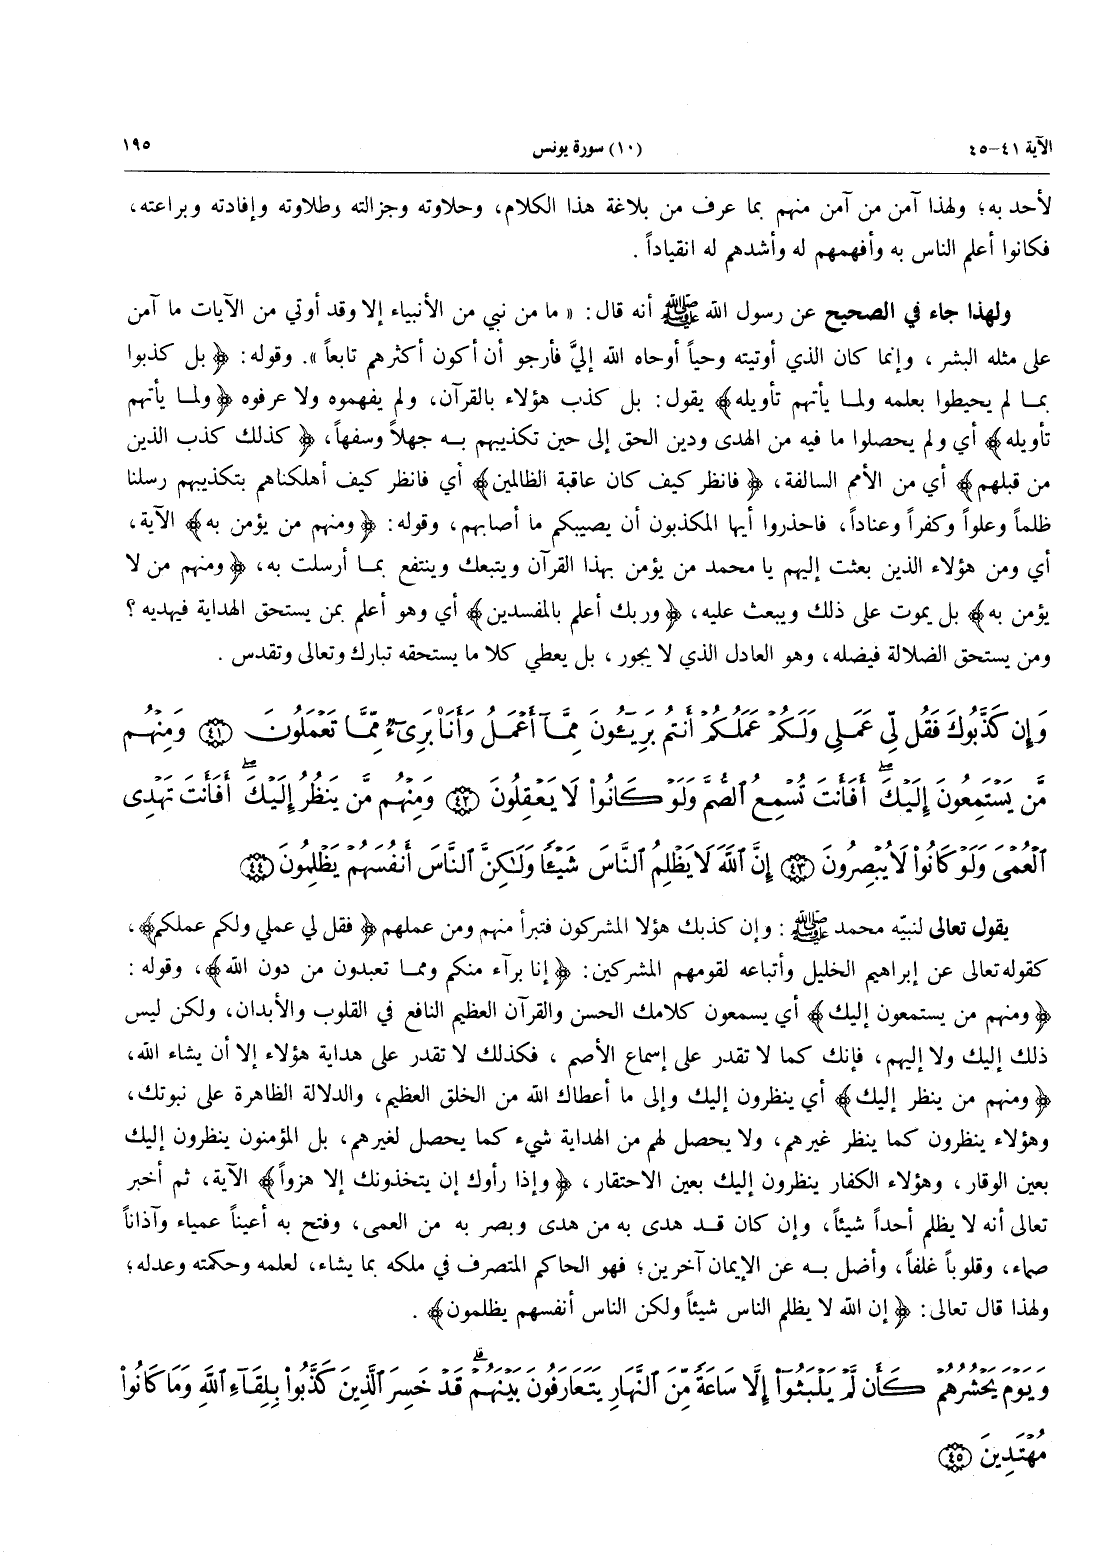 الآية ٤١-٤٥
(١٠) سورة يونس
١٩٥
لأحد به؛ ولهذا آمن من آمن منهم بما عرف من بلاغة هذا الكلام، وحلاوته وجزالته وطلاوته وإفادته وبراعته،
فكانوا أعلم الناس به وأفهمهم له وأشدهم له انقياداً .
ولهذا جاء في الصحيح عن رسول الله ﷺ أنه قال: « ما من نبي من الأنبياء إلا وقد أوتي من الآيات ما آمن
على مثله البشر ، وإنما كان الذي أوتيته وحياً أوحاه الله إليَّ فأرجو أن أكون أكثرهم تابعاً ». وقوله: ﴿ بل كذبوا
بمـا لم يحيطوا بعلمه ولمـا يأتهم تأويله﴾ يقول: بل كذب هؤلاء بالقرآن، ولم يفهموه ولا عرفوه ﴿ ولمـا يأتهم
تأويله﴾ أي ولم يحصلوا ما فيه من الهدى ودين الحق إلى حين تكذيبهم بـه جهلاً وسفهاً، ﴿ كذلك كذب الذين
من قبلهم﴾ أي من الأمم السالفة، ﴿ فانظر كيف كان عاقبة الظالمين﴾ أي فانظر كيف أهلكناهم بتكذيبهم رسلنا
ظلماً وعلواً وكفراً وعناداً، فاحذروا أيها المكذبون أن يصيبكم ما أصابهم، وقوله: ﴿ ومنهم من يؤمن به﴾ الآية،
أي ومن هؤلاء الذين بعثت إليهم يا محمد من يؤمن بهذا القرآن ويتبعك وينتفع بمـا أرسلت به، ﴿ ومنهم من لا
يؤمن به﴾ بل يموت على ذلك ويبعث عليه، ﴿ وربك أعلم بالمفسدين﴾ أي وهو أعلم بمن يستحق الهداية فيهديه ؟
ومن يستحق الضلالة فيضله، وهو العادل الذي لا يجور ، بل يعطي كلا ما يستحقه تبارك وتعالى وتقدس .
وَإِن كَذَّبُوكَ فَقُل لِّي عَمَلِي وَلَكُمْ عَمَلُكُمْ أَنتُم بَرِيٓـُٔونَ مِمَّآ أَعْمَلُ وَأَنَا۠ بَرِيٓءٌ مِّمَّا تَعْمَلُونَ ﴿٤١﴾ وَمِنْهُم
مَّن يَسْتَمِعُونَ إِلَيْكَ ۖ أَفَأَنتَ تُسْمِعُ ٱلصُّمَّ وَلَوْ كَانُوا۟ لَا يَعْقِلُونَ ﴿٤٢﴾ وَمِنْهُم مَّن يَنظُرُ إِلَيْكَ ۖ أَفَأَنتَ تَهْدِى
ٱلْعُمْىَ وَلَوْ كَانُوا۟ لَا يُبْصِرُونَ ﴿٤٣﴾ إِنَّ ٱللَّهَ لَا يَظْلِمُ ٱلنَّاسَ شَيْـًٔا وَلَٰكِنَّ ٱلنَّاسَ أَنفُسَهُمْ يَظْلِمُونَ ﴿٤٤﴾
يقول تعالى لنبيّه محمد ﷺ : وإن كذبك هؤلا المشركون فتبرأ منهم ومن عملهم ﴿ فقل لي عملي ولكم عملكم﴾،
كقوله تعالى عن إبراهيم الخليل وأتباعه لقومهم المشركين: ﴿ إنا برآء منكم وممـا تعبدون من دون الله﴾، وقوله :
﴿ ومنهم من يستمعون إليك﴾ أي يسمعون كلامك الحسن والقرآن العظيم النافع في القلوب والأبدان، ولكن ليس
ذلك إليك ولا إليهم، فإنك كما لا تقدر على إسماع الأصم ، فكذلك لا تقدر على هداية هؤلاء إلا أن يشاء الله،
﴿ ومنهم من ينظر إليك﴾ أي ينظرون إليك وإلى ما أعطاك الله من الخلق العظيم، والدلالة الظاهرة على نبوتك،
وهؤلاء ينظرون كما ينظر غيرهم، ولا يحصل لهم من الهداية شيء كما يحصل لغيرهم، بل المؤمنون ينظرون إليك
بعين الوقار ، وهؤلاء الكفار ينظرون إليك بعين الاحتقار ، ﴿ وإذا رأوك إن يتخذونك إلا هزواً﴾ الآية، ثم أخبر
تعالى أنه لا يظلم أحداً شيئاً، وإن كان قـد هدى به من هدى وبصر به من العمى، وفتح به أعيناً عمياء وآذاناً
صماء، وقلوباً غلفاً، وأضل بـه عن الإيمان آخرين؛ فهو الحاكم المتصرف في ملكه بما يشاء، لعلمه وحكمته وعدله؛
ولهذا قال تعالى: ﴿ إن الله لا يظلم الناس شيئاً ولكن الناس أنفسهم يظلمون﴾ .
وَيَوْمَ يَحْشُرُهُمْ كَأَن لَّمْ يَلْبَثُوٓا۟ إِلَّا سَاعَةً مِّنَ ٱلنَّهَارِ يَتَعَارَفُونَ بَيْنَهُمْ ۚ قَدْ خَسِرَ ٱلَّذِينَ كَذَّبُوا۟ بِلِقَآءِ ٱللَّهِ وَمَا كَانُوا۟
مُهْتَدِينَ ﴿٤٥﴾